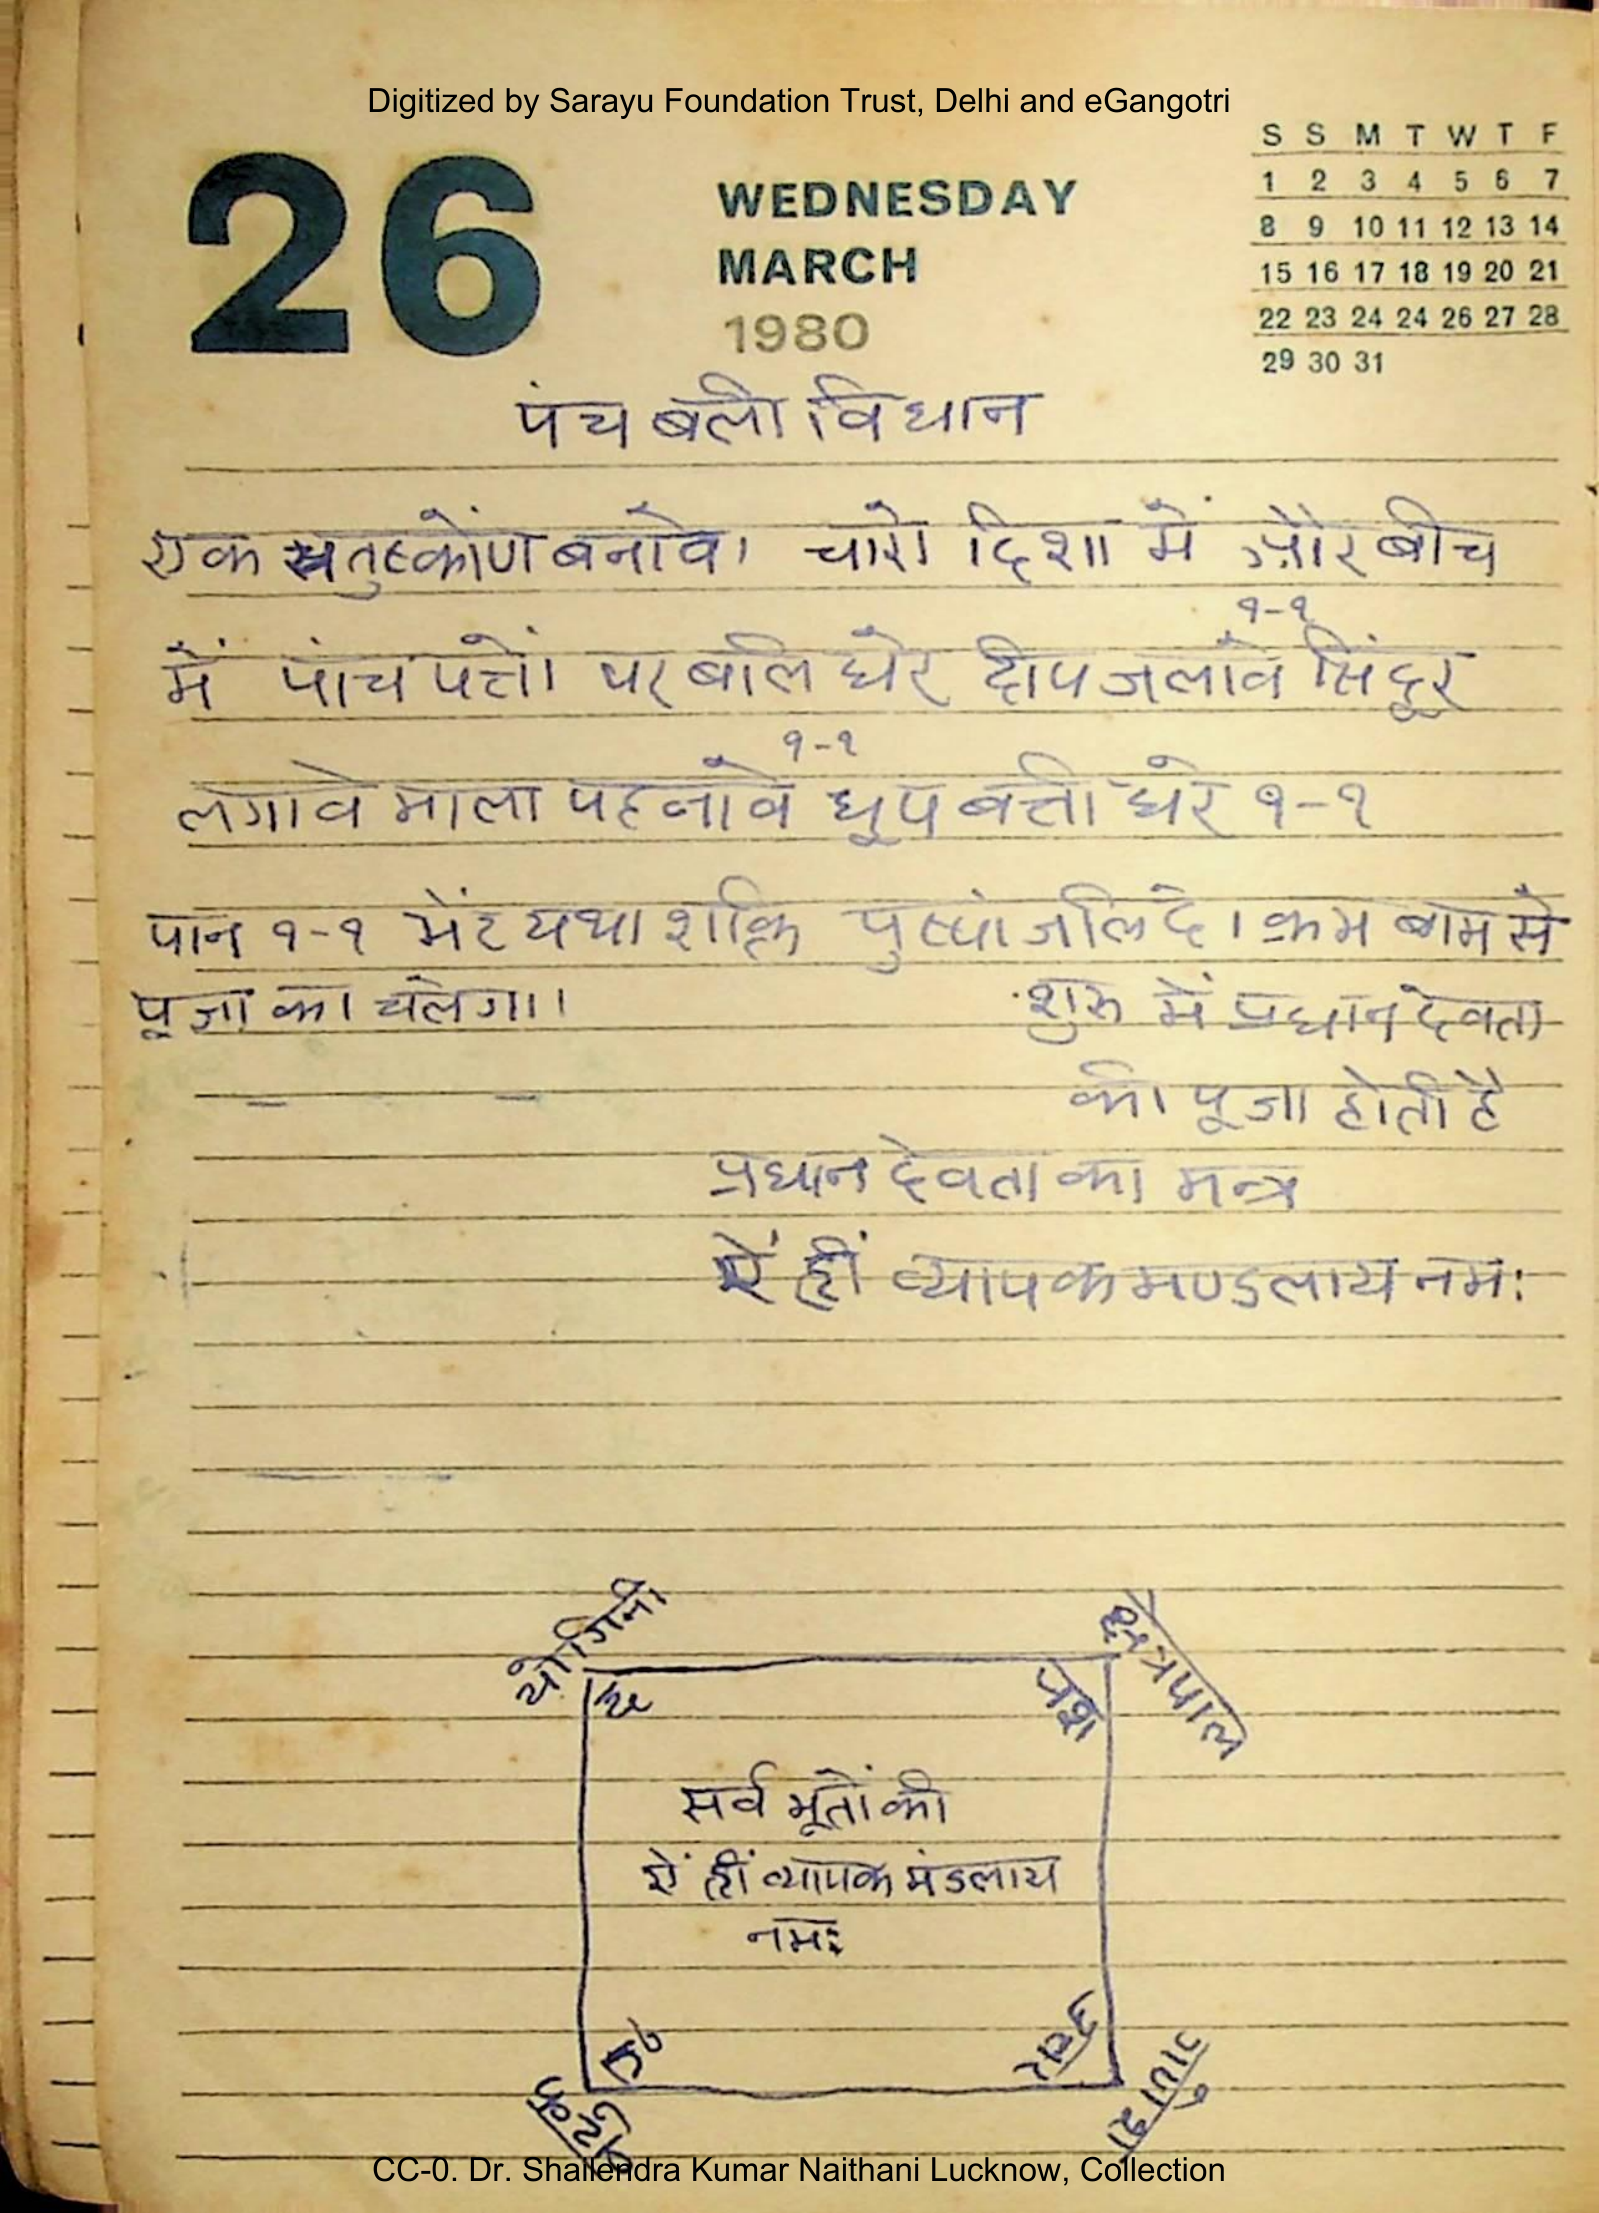 Digitized by Sarayu Foundation Trust, Delhi and eGangotri
26
WEDNESDAY
MARCH
1980
S S M T W T F
1 2 3 4 5 6 7
8 9 10 11 12 13 14
15 16 17 18 19 20 21
22 23 24 24 26 27 28
29 30 31
पंच बली विधान
एक चतुष्कोण बनावे। चारो दिशा में और बीच
में पांच पत्तो पर बलि धरे दीप जलावे १-१ सिंदूर
लगावे माला पहनावे १-१ धूप बत्ती धरे १-१
पान १-१ भेंट यथा शक्ति पुष्पांजलि दे। क्रम बाम से
पूजा का चलेगा।
शुरू में प्रधान देवता
की पूजा होती है
प्रधान देवता का मन्त्र
ऐं ह्रीं व्यापक मण्डलाय नमः
योगिनी
क्षेत्रपाल
सर्व भूतों की
ऐं ह्रीं व्यापक मंडलाय
नमः
पू०
उत्तर
बटुक
गणेश
CC-0. Dr. Shailendra Kumar Naithani Lucknow, Collection